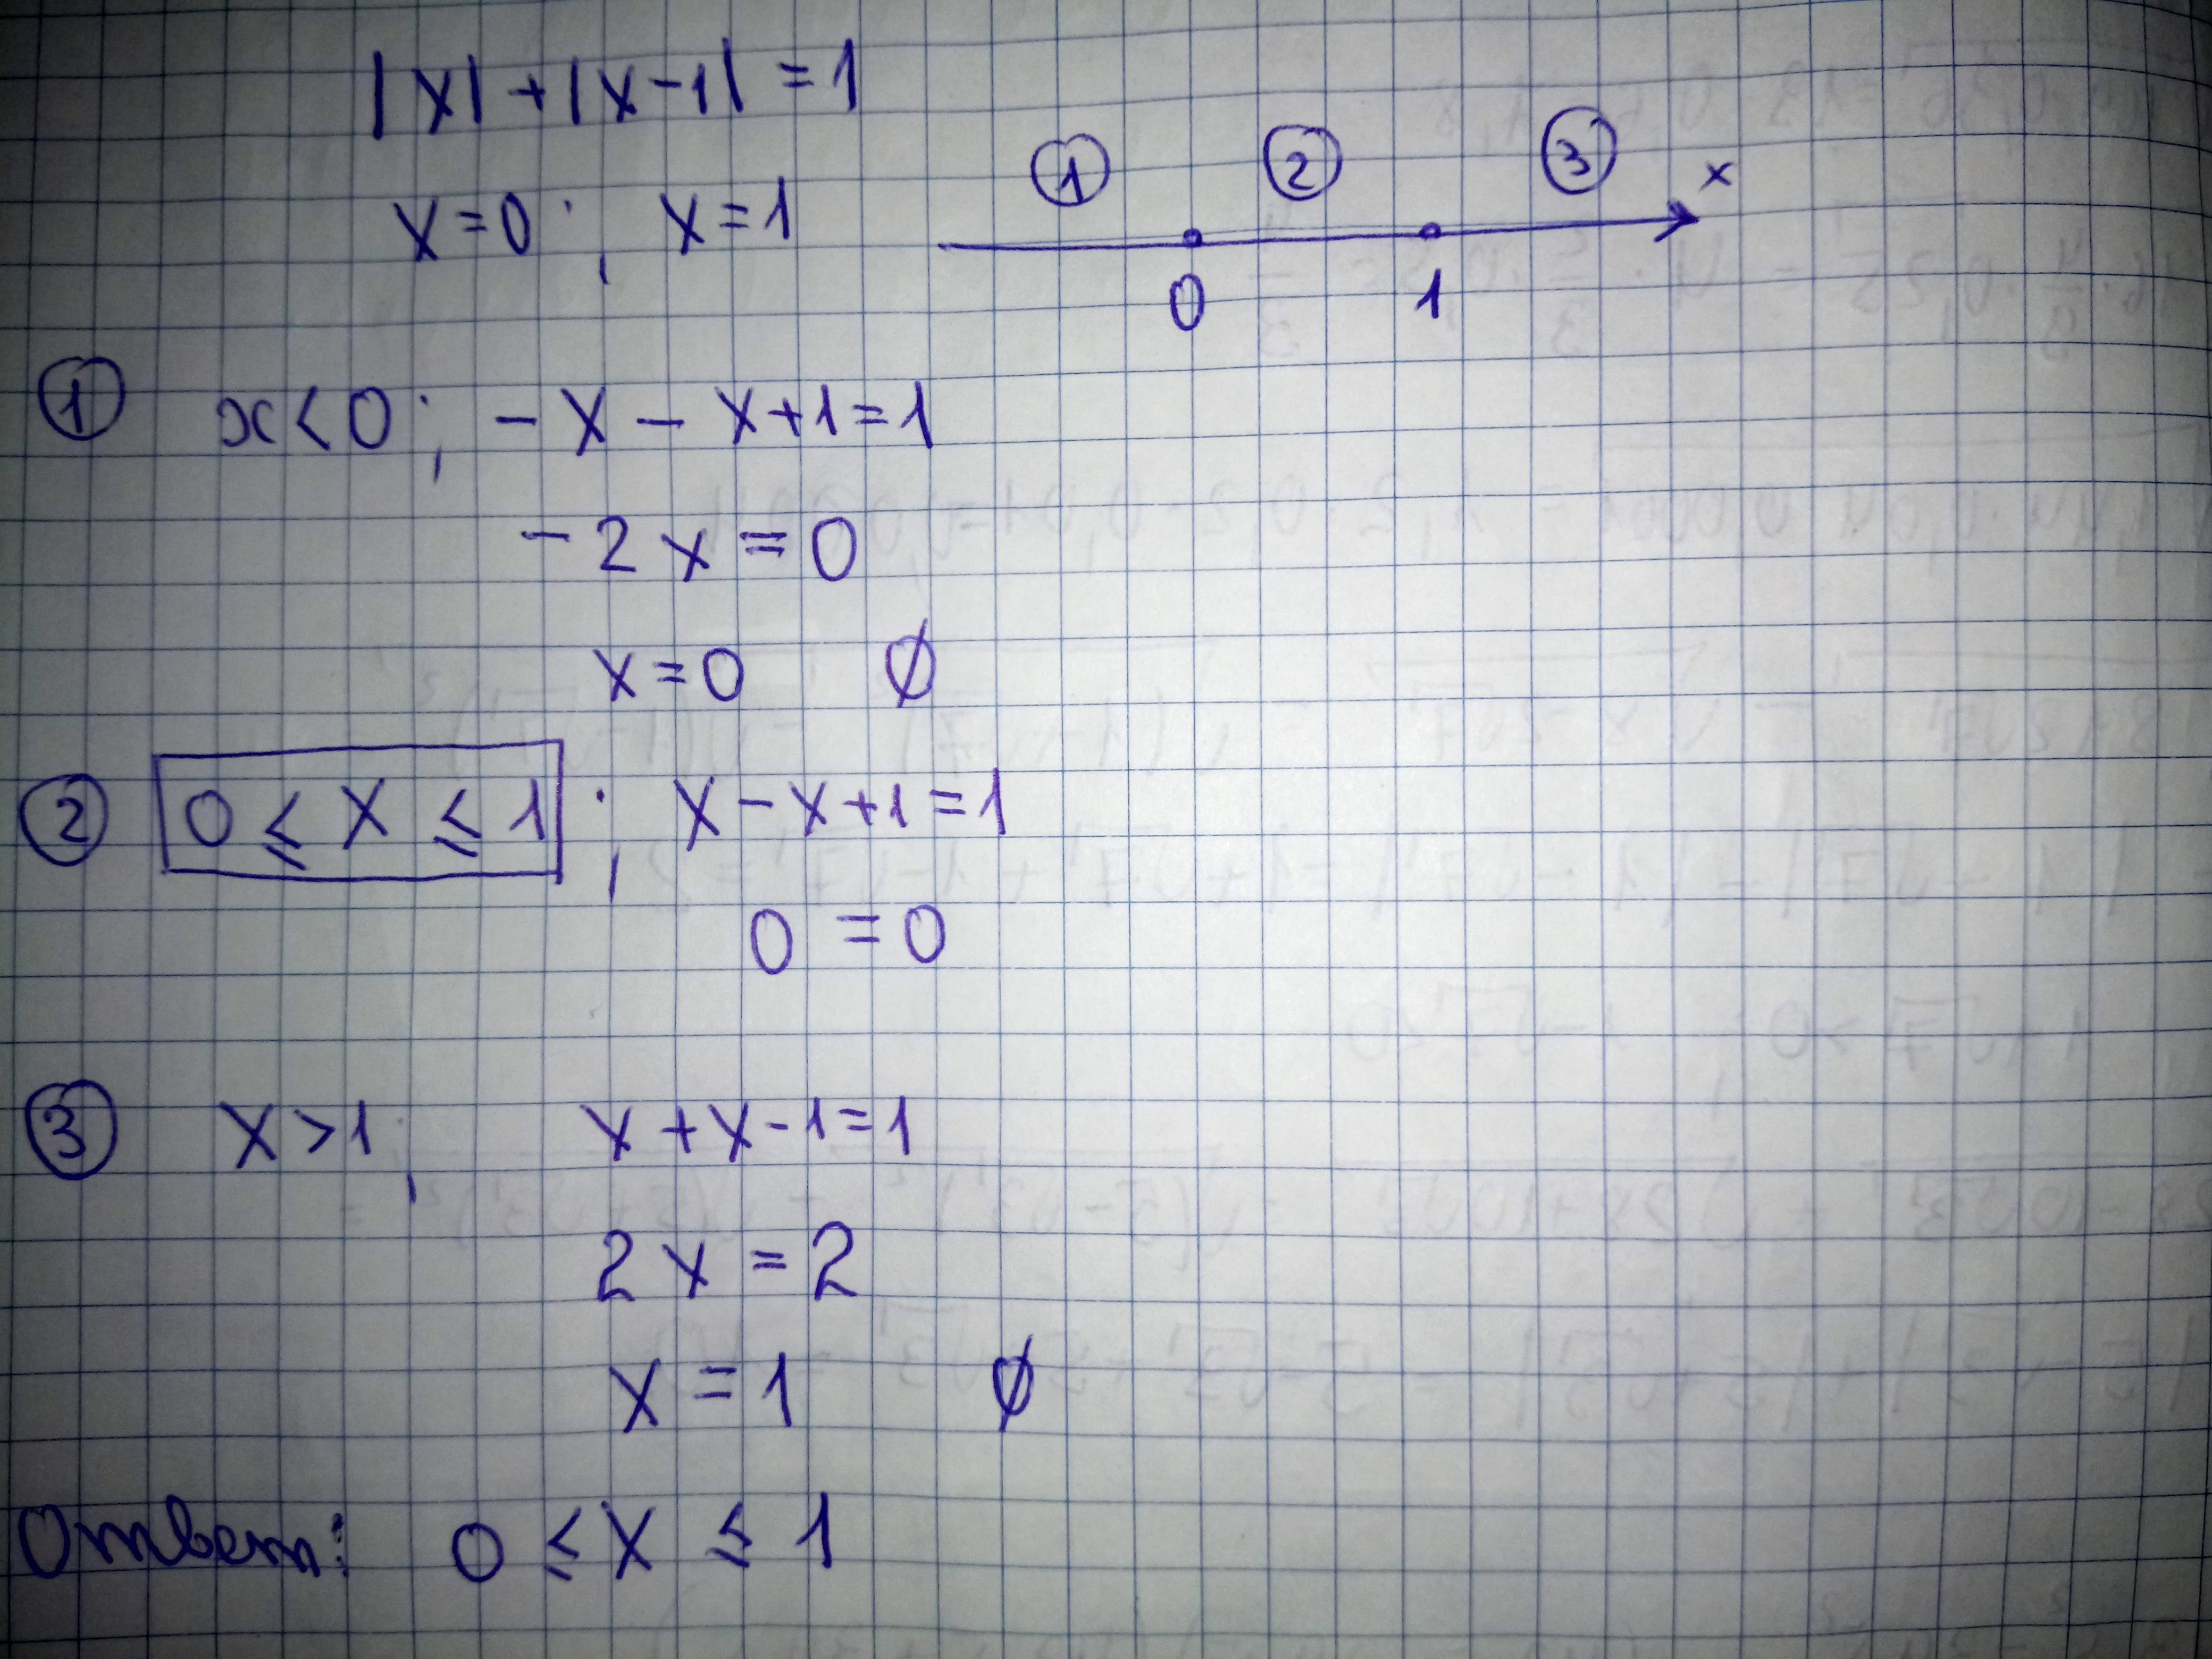 |x| + |x-1| = 1
x=0; x=1
① ② ③ x
0 1
① x<0; -x-x+1=1
-2x=0
x=0 ∅
② 0≤x≤1; x-x+1=1
0=0
③ x>1; x+x-1=1
2x=2
x=1 ∅
Ответ: 0≤x≤1